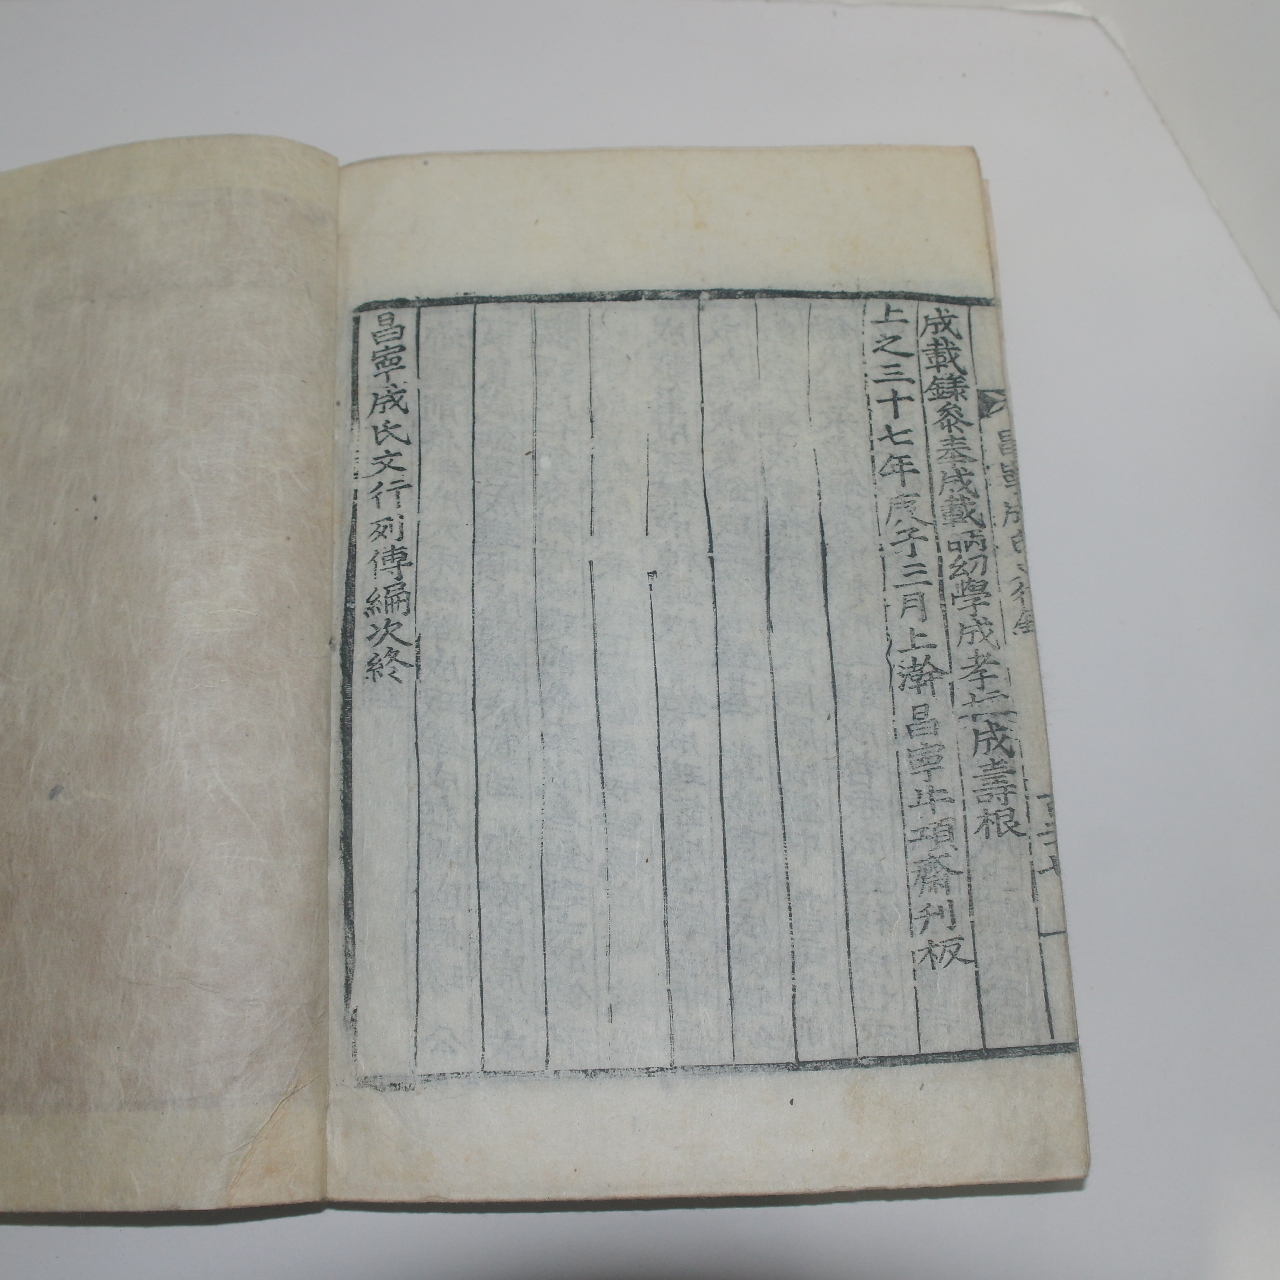 昌寧成氏文行錄
成載鎵參奉成載昞幼學成孝 成壽根
上之三十七年庚子三月上澣昌寧牛項齋刋板
昌寧成氏文行列傳編次終